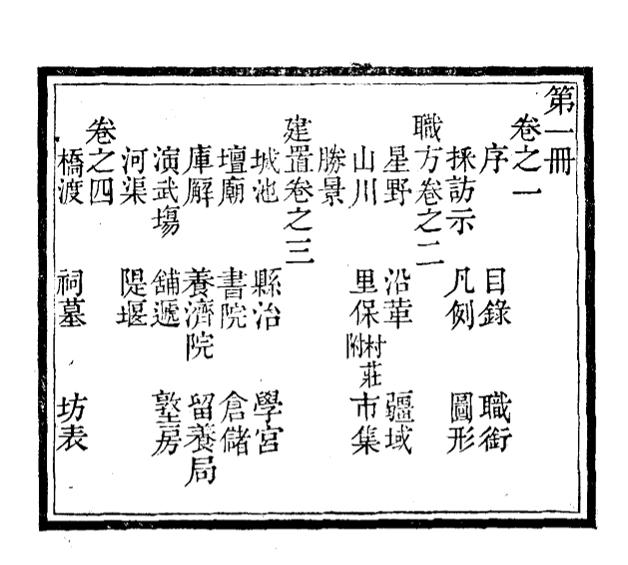 第一冊
卷之一
序 目錄 職銜
採訪示 凡例 圖形
職方卷之二
星野 沿革 疆域
山川 里保村莊附 市集
勝景
建置卷之三
城池 縣治 學宮
壇廟 書院 倉儲
庫廨 養濟院 留養局
演武塲 舖遞 墪房
河渠 隄堰
卷之四
橋渡 祠墓 坊表